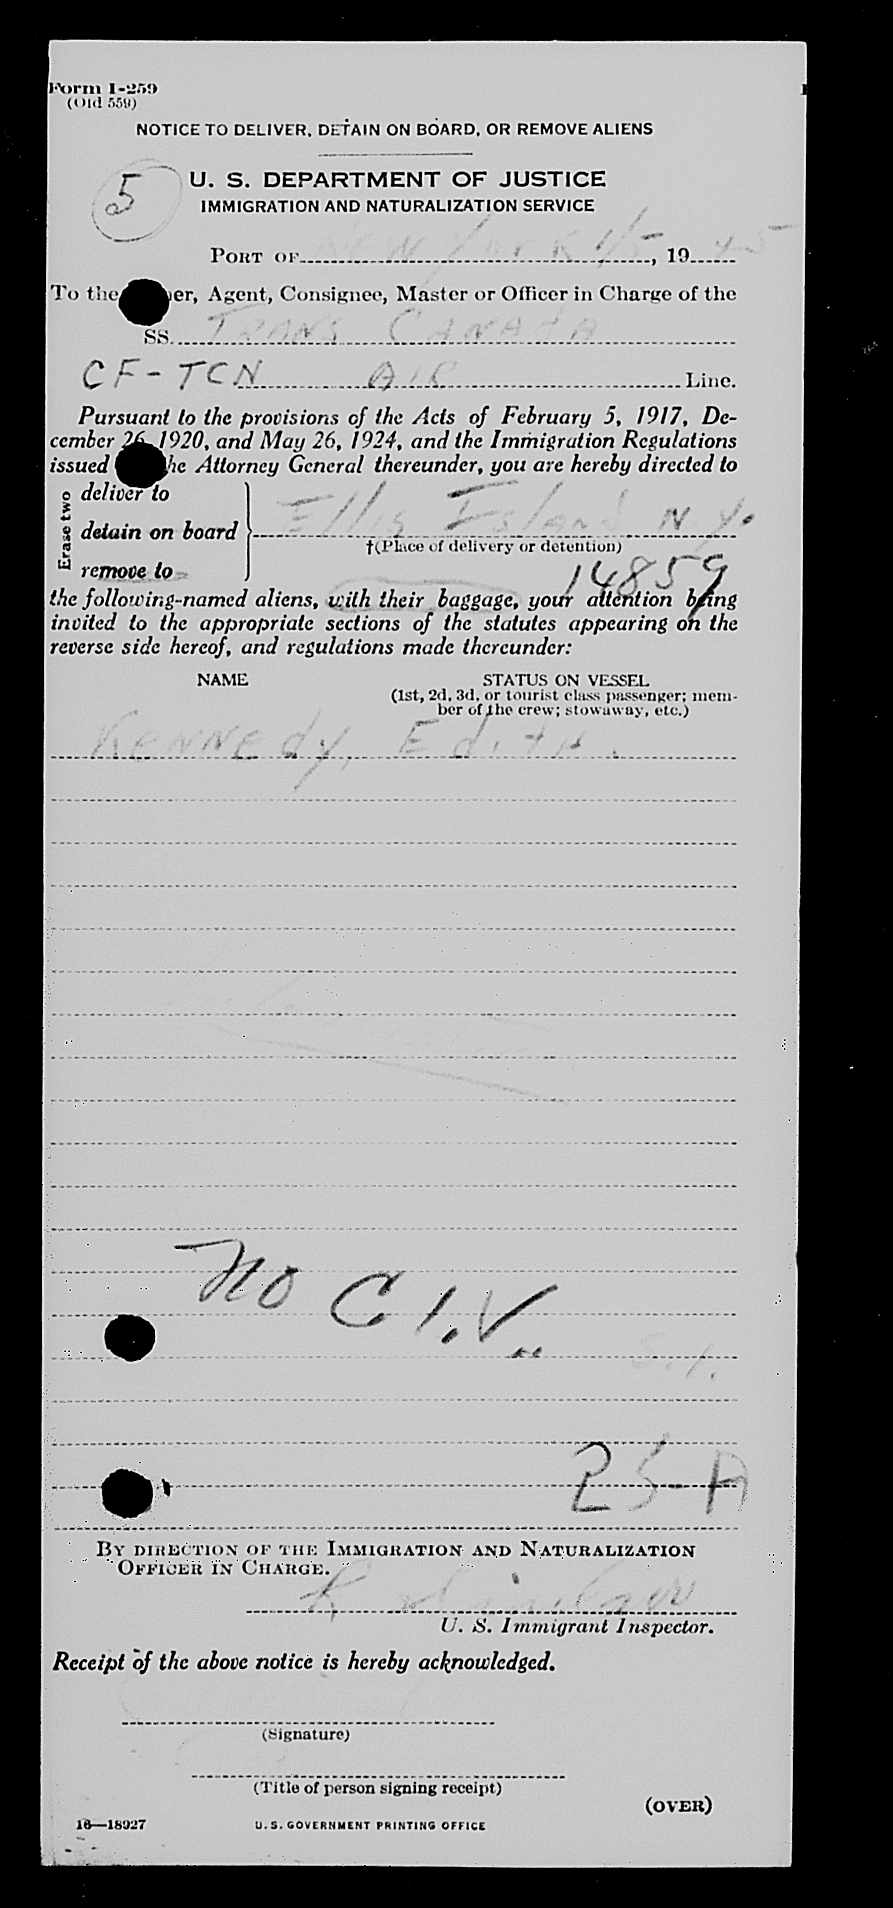 Form I-259
(Old 559)
NOTICE TO DELIVER, DETAIN ON BOARD, OR REMOVE ALIENS
5
U. S. DEPARTMENT OF JUSTICE
IMMIGRATION AND NATURALIZATION SERVICE
PORT OF New York 1/5, 19 45
To the er, Agent, Consignee, Master or Officer in Charge of the
SS. TRANS CANADA
CF-TCN AIR Line.
Pursuant to the provisions of the Acts of February 5, 1917, De-
cember 26, 1920, and May 26, 1924, and the Immigration Regulations
issued he Attorney General thereunder, you are hereby directed to
Erase two
deliver to
detain on board
remove to
Ellis Island N.Y.
†(Place of delivery or detention)
14859
the following-named aliens, with their baggage, your attention being
invited to the appropriate sections of the statutes appearing on the
reverse side hereof, and regulations made thereunder:
NAME STATUS ON VESSEL
(1st, 2d, 3d, or tourist class passenger; mem-
ber of the crew; stowaway, etc.)
Kennedy, Edith.
no C.I.V.
S.I.
25-A
BY DIRECTION OF THE IMMIGRATION AND NATURALIZATION
OFFICER IN CHARGE.
U. S. Immigrant Inspector.
Receipt of the above notice is hereby acknowledged.
(Signature)
(Title of person signing receipt)
(OVER)
16—18927 U.S. GOVERNMENT PRINTING OFFICE